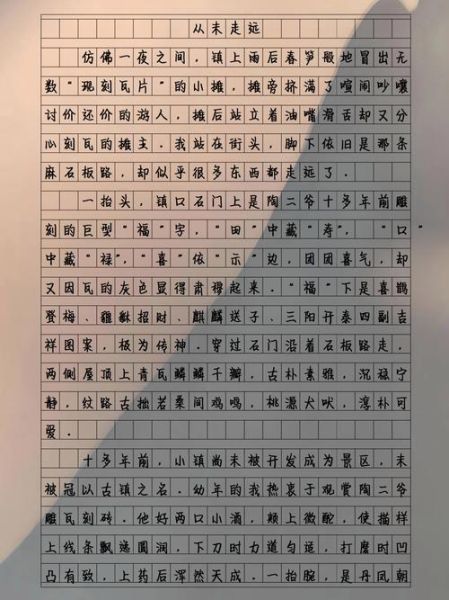 从未走远
仿佛一夜之间，镇上雨后春笋般地冒出无
数“现刻瓦片”的小摊，摊旁挤满了喧闹吵嚷
讨价还价的游人，摊后站立着油嘴滑舌却又分
心刻瓦的摊主。我站在街头，脚下依旧是那条
麻石板路，却似乎很多东西都走远了。
一抬头，镇口石门上是陶二爷十多年前雕
刻的巨型“福”字，“田”中藏“寿”，“口”
中藏“禄”，“喜”依“示”边，团团喜气，却
又因瓦的灰色显得肃穆起来。“福”下是喜鹊
登梅、貔貅招财、麒麟送子、三阳开泰四副吉
祥图案，极为传神。穿过石门沿着石板路走，
两侧屋顶上青瓦鳞鳞千瓣，古朴素雅，沉稳宁
静，纹路古拙若桑间鸡鸣，桃源犬吠，淳朴可
爱。
十多年前，小镇尚未被开发成为景区，未
被冠以古镇之名。幼年的我热衷于观赏陶二爷
雕瓦刻砖。他好两口小酒，颊上微酡，使描样
上线条飘逸圆润，下刀时力道匀适，打磨时凹
凸有致，上药后浑然天成。一抬腕，是丹凤朝